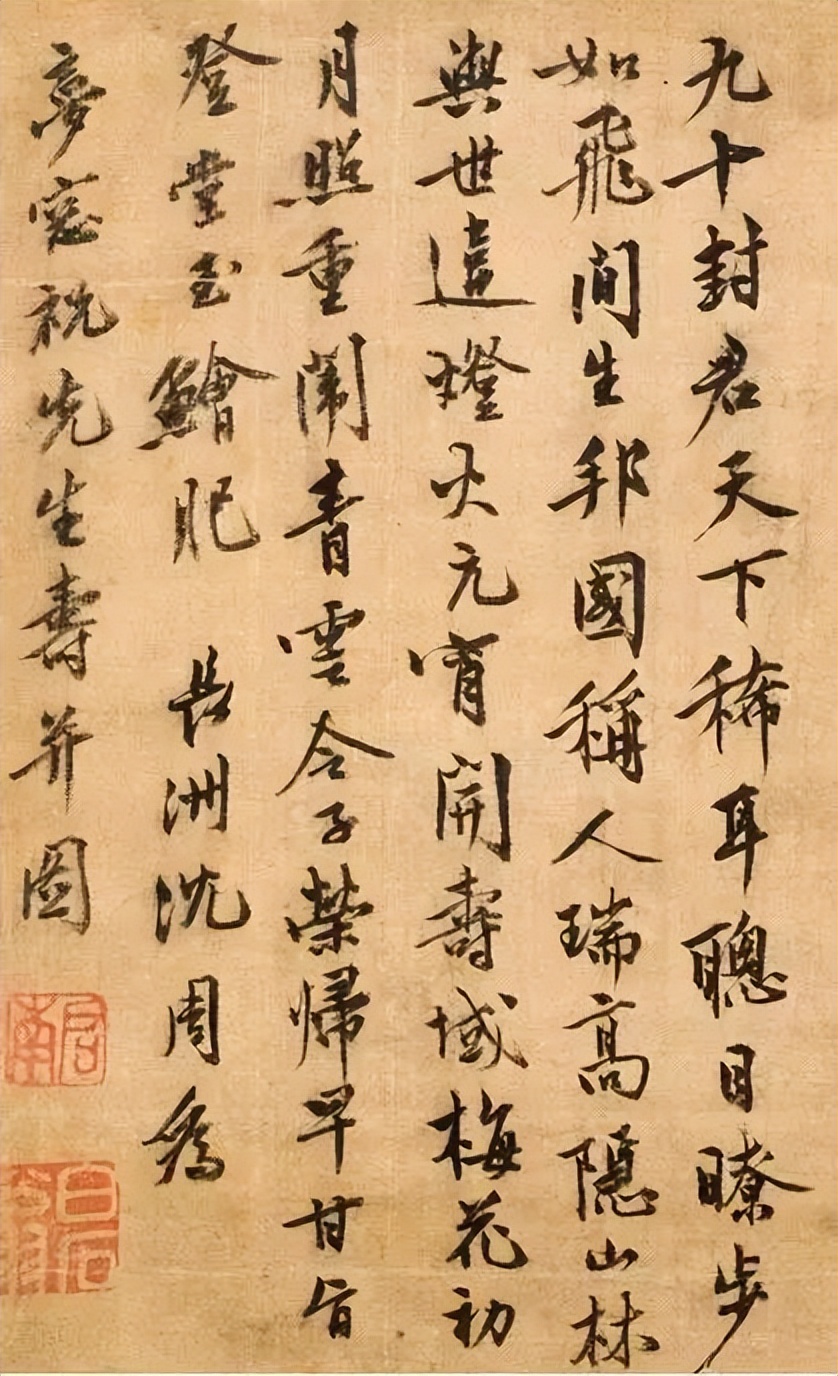 九十封君天下稀耳聰目瞭步
如飛間生邦國稱人瑞高隱山林
與世違燈火元宵開壽域梅花初
月照重闈青雲令子榮歸早甘旨
登堂玉鱠肥　長洲沈周為
夢窓祝先生壽并圖
啟南
白石